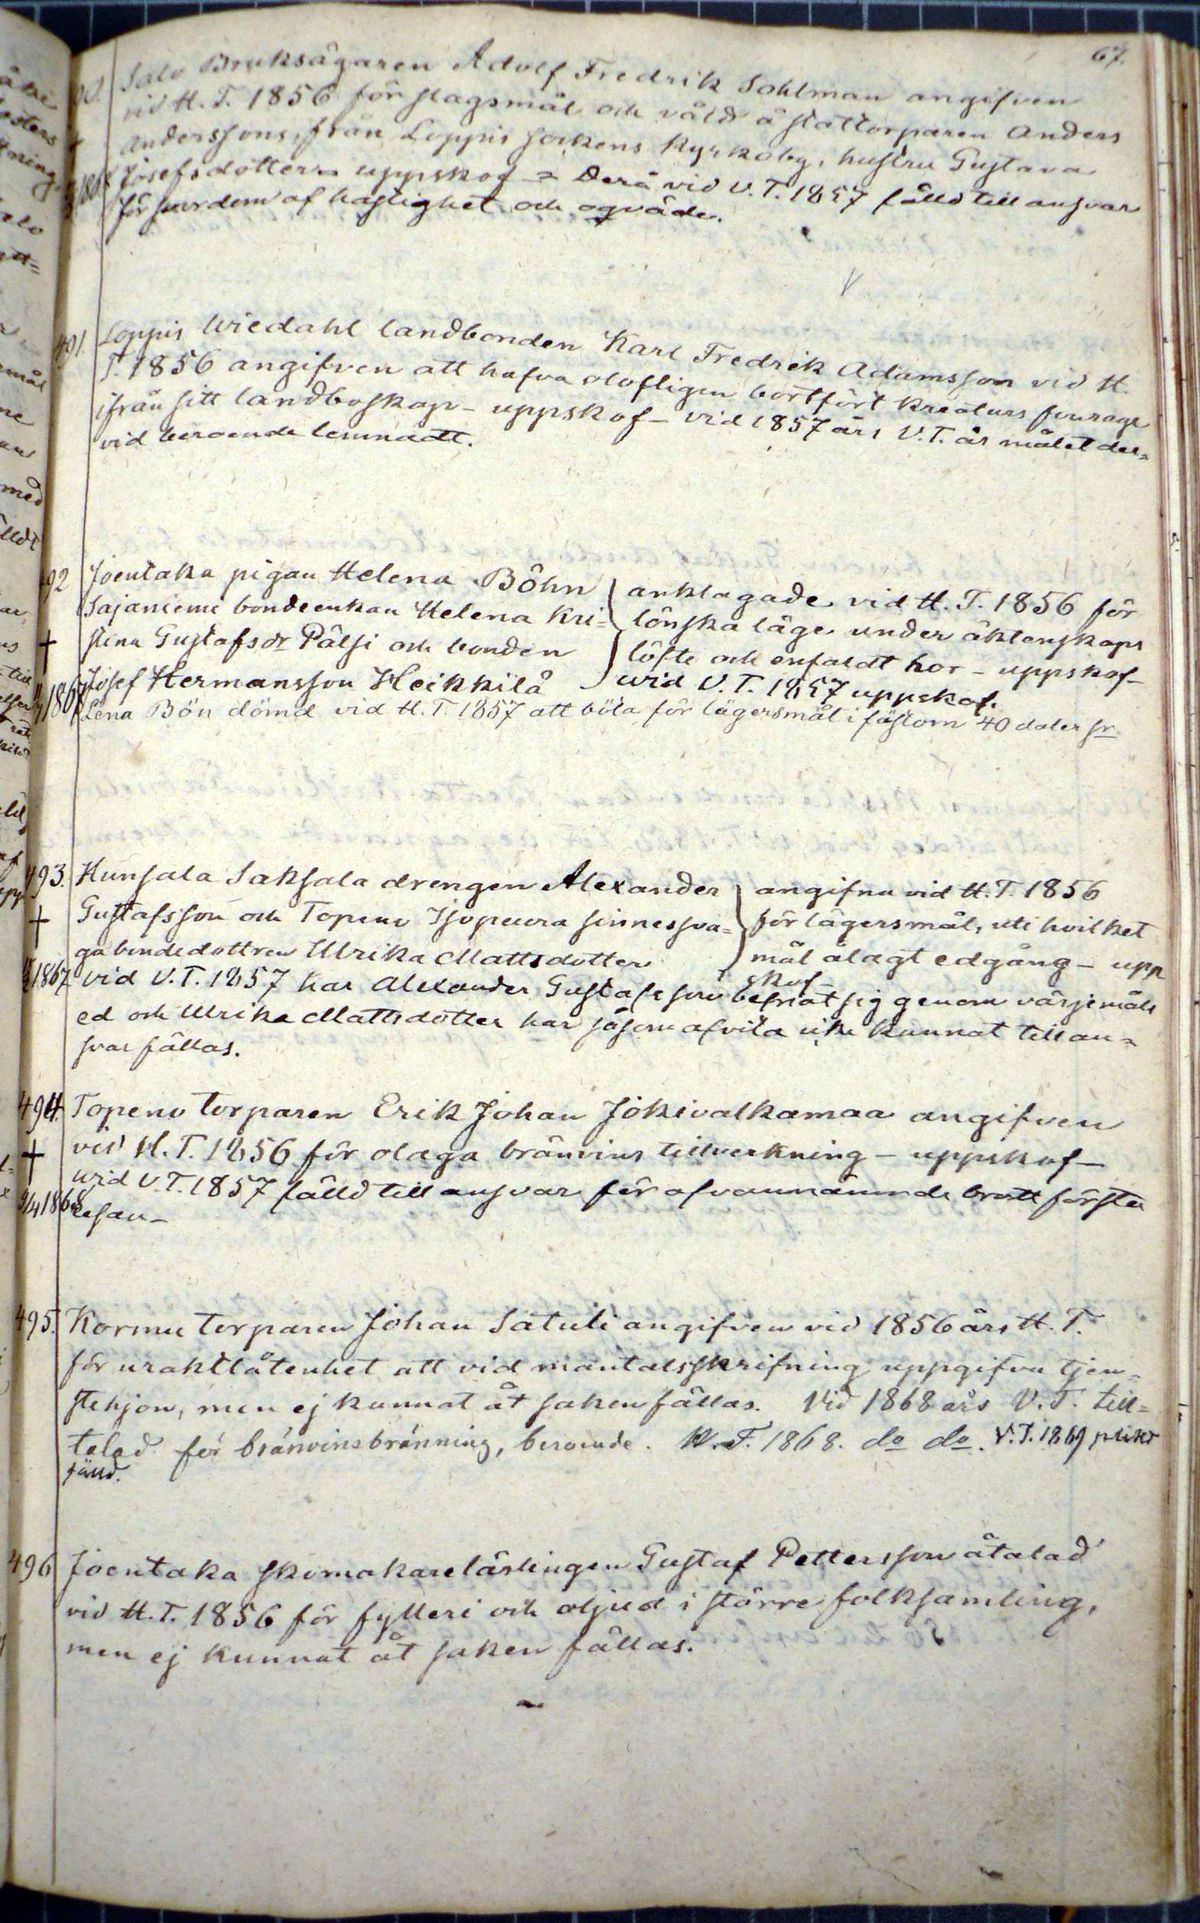 67.
Salo Bruksägaren Adolf Fredrik Sohlman angifven
vid H. T. 1856 för slagsmål och våld å stattorparen Anders
Anderssons, från Loppis sockens Kyrkoby, hustru Gustava
Josefsdotter - uppskof - Derå vid V. T. 1857 fälld till ansvar
för hurdom af hastighet och ovåda.
491. Loppis Wiedahl landbonden Karl Fredrik Adamsson vid H.
T. 1856 angifven att hafva olofligen bortfört kreaturs fourage
ifrån sitt landboskap - uppskof - vid 1857 års V. T. är målet der=
vid beroende lemnadt.
492 Joentaka pigan Helena Böhn
Sajaniemi bondeenkan Helena Kri=
stina Gustafsdr Pälsi och bonden
Josef Hermansson Heikkilä
anklagade vid H. T. 1856 för
lönskaläge under äktenskaps
löfte och enfaldt hor - uppskof -
wid V. T. 1857 uppskof.
Lena Bön dömd vid H. T. 1857 att böta för lägersmål i fästom 40 daler sr.
493. Hunsala Saksala drengen Alexander
Gustafsson och Topeno Isopeura sinnessva=
ga bondedottren Ulrika Mattsdotter
angifna vid H. T. 1856
för lägersmål, uti hvilket
mål alagt edgång - upp
skof -
1867 vid V. T. 1857 har Alexander Gustafsson befriat sig genom värjemåls
ed och Ulrika Mattsdotter har såsom afvita icke kunnat till an=
svar fällas.
494. Topeno torparen Erik Johan Jokivalkamaa angifven
vid H. T. 1856 för olaga bränvins tillverkning - uppskof -
wid V. T. 1857 fälld till ansvar för ofvannämnde brott första
1868 resan -
495. Kormu torparen Johan Satuli angifven vid 1856 års H. T.
för uraktlåtenhet att vid mantalsskrifning uppgifva tjen=
stehjon, men ej kunnat åt saken fällas. Vid 1868 års V. T. till=
talad för bränvinsbränning, beroende. H. T. 1868. do do. V. T. 1869 plikt
fälld.
496 Joentaka skomakarelärlingen Gustaf Pettersson åtalad
vid H. T. 1856 för fylleri och oljud i större folksamling,
men ej kunnat åt saken fällas.